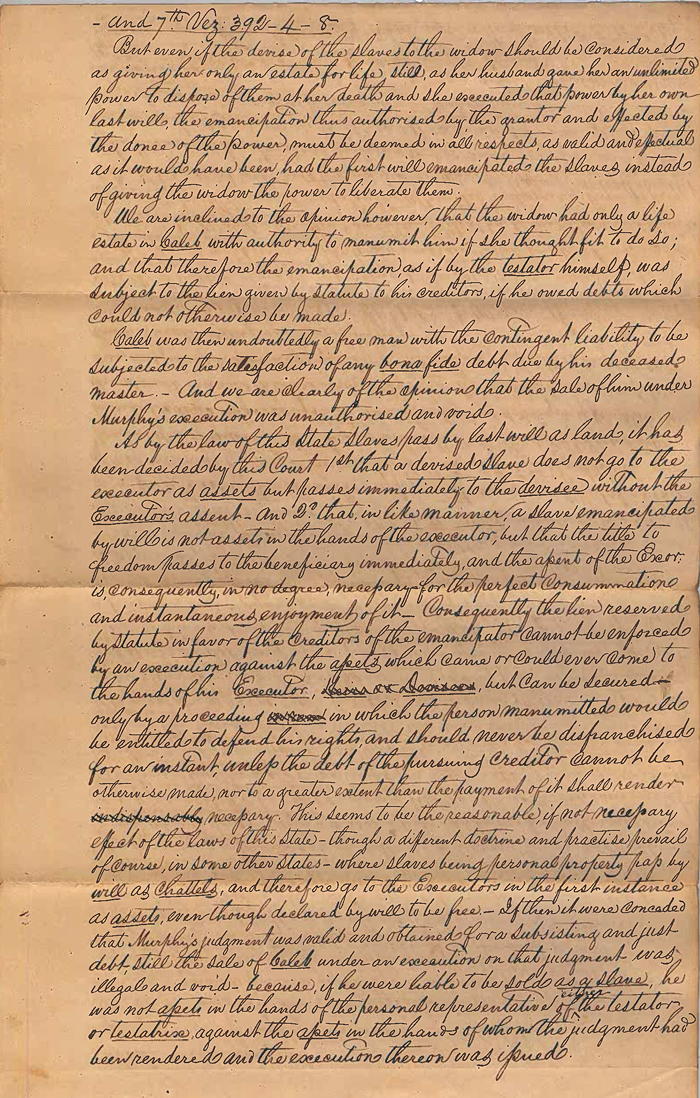 - and 7th. Vez: 392-4-8.
But even if the devise of the slaves to the widow should be considered
as giving her only an estate for life, still, as her husband gave her an unlimited
power to dispose of them at her death and she executed that power by her own
last will the emancipation thus authorised by the grantor and effected by
the donee of the power, must be deemed in all respects, as valid and effectual
as it would have been, had the first will emancipated the slaves instead
of giving the widow the power to liberate them.
We are inclined to the opinion however, that the widow had only a life
estate in Caleb with authority to manumit him if she thought fit to do so;
and that therefore the emancipation, as if by the testator himself, was
subject to the lien given by statute to his creditors, if he owed debts which
could not otherwise be made.
Caleb was then undoubtedly a free man with the contingent liability to be
subjected to the satisfaction of any bona fide debt due by his deceased
master. - And we are clearly of the opinion that the sale of him under
Murphy's execution was unauthorised and void.
As by the law of this State slaves pass by last will as land, it has
been decided by this Court 1st that a devised slave does not go to the
executor as assets but passes immediately to the devisee without the
Executor's assent - And 2d. that, in like manner, a slave emancipated
by will is not assets in the hands of the executor, but that the title to
freedom passes to the beneficiary immediately, and the assent of the Exor:
is, consequently, in no degree, necessary for the perfect consummation
and instantaneous enjoyment of it - Consequently the lien reserved
by statute in favor of the creditors of the emancipator cannot be enforced
by an execution against the assets which came or could ever come to
the hands of his Executor, heirs or devisees, but can be secured -
only by a proceeding in which the person manumitted would
be entitled to defend his rights, and should never be disfranchised
for an instant, unless the debt of the pursuing creditor cannot be
otherwise made, nor to a greater extent than the payment of it shall render
indispensably necessary. This seems to be the reasonable, if not necessary
effect of the laws of this State - though a different doctrine and practise prevail
of course, in some other States - where slaves being personal property pass by
will as Chattels, and therefore go to the Executors in the first instance
as assets, even though declared by will to be free. - If then it were conceded
that Murphy's judgment was valid and obtained for a subsisting and just
debt, still the sale of Caleb under an execution on that judgment was
illegal and void - because, if he were liable to be sold as a slave, he
was not assets in the hands of the personal representative either of the testator
or testatrix, against the assets in the hands of whom the judgment had
been rendered and the execution thereon was issued.